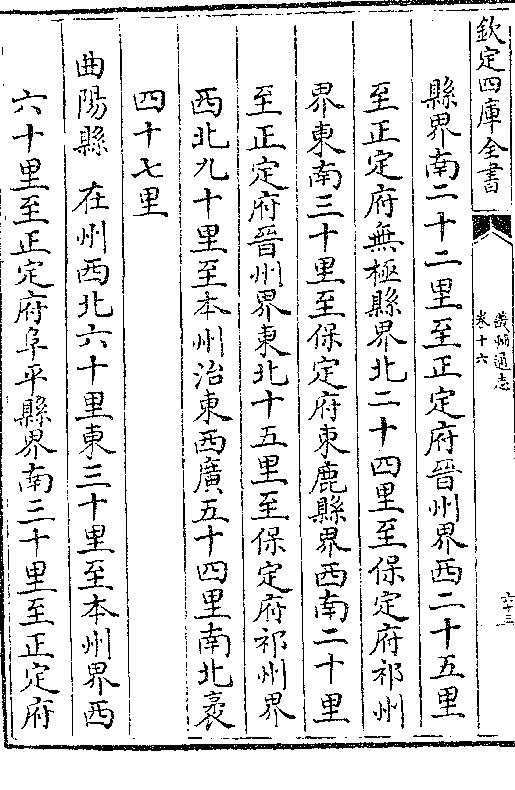 欽定四庫全書
畿輔通志
卷十六
六十三
縣界南二十二里至正定府晉州界西二十五里
至正定府無極縣界北二十四里至保定府祁州
界東南三十里至保定府束鹿縣界西南二十里
至正定府晉州界東北十五里至保定府祁州界
西北九十里至本州治東西廣五十四里南北袤
四十七里
曲陽縣 在州西北六十里東三十里至本州界西
六十里至正定府阜平縣界南三十里至正定府